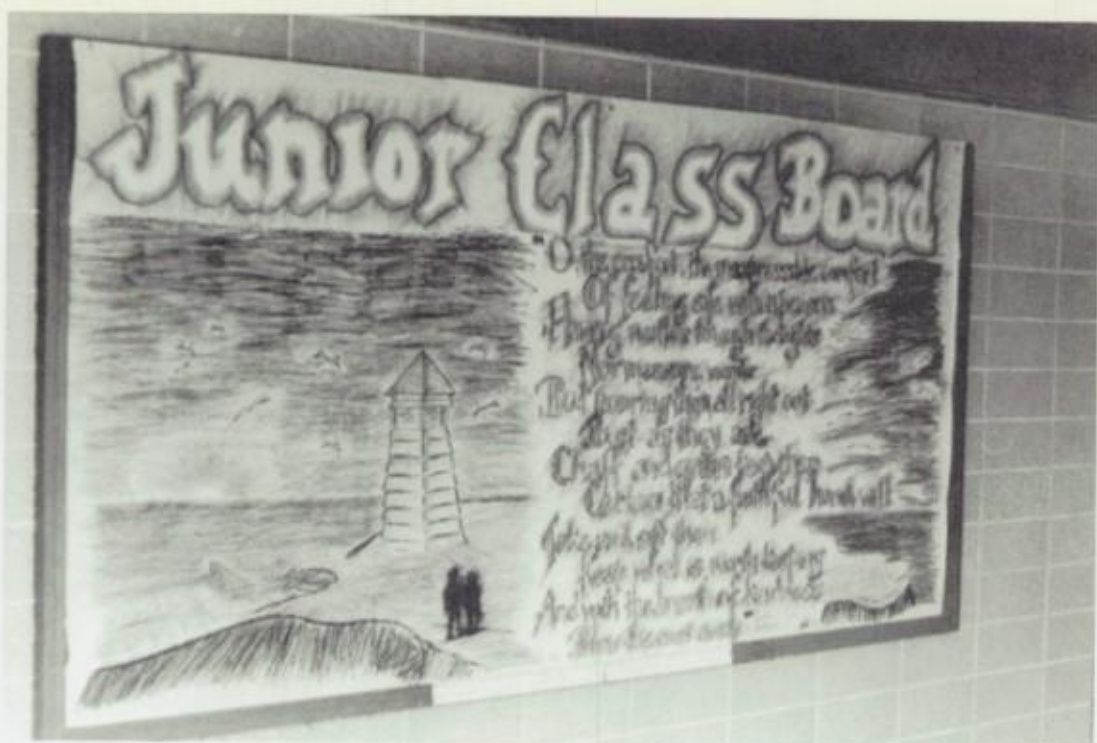 Junior Class Board
"O the comfort, the inexpressible comfort
Of feeling safe with a person
Having neither to weigh thoughts
Nor measure words
But pouring them all right out
Just as they are
Chaff and grain together
Certain that a faithful hand will
Take and sift them
Keep what is worth keeping
And with the breath of kindness
Blow the rest away